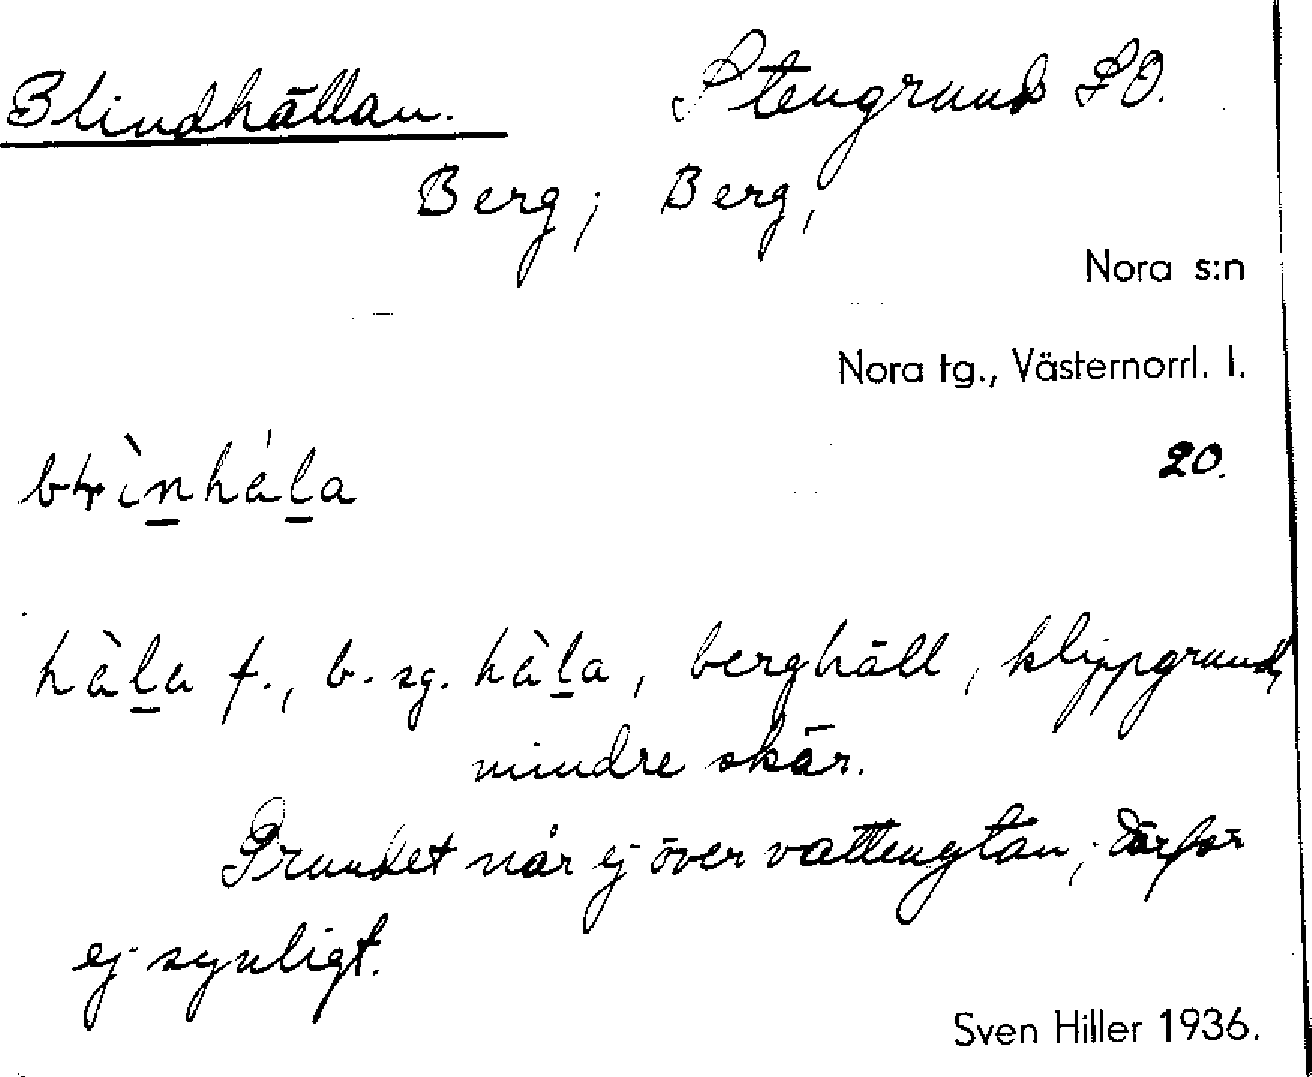 Blindhällan. Stengrund SO.
Berg; Berg,
Nora s:n
Nora tg., Västernorrl. l.
20.
hàla f., b. sg. hàla, berghäll, klippgrund,
mindre skär.
Grundet når ej över vattenytan; därför
ej synligt.
Sven Hiller 1936.